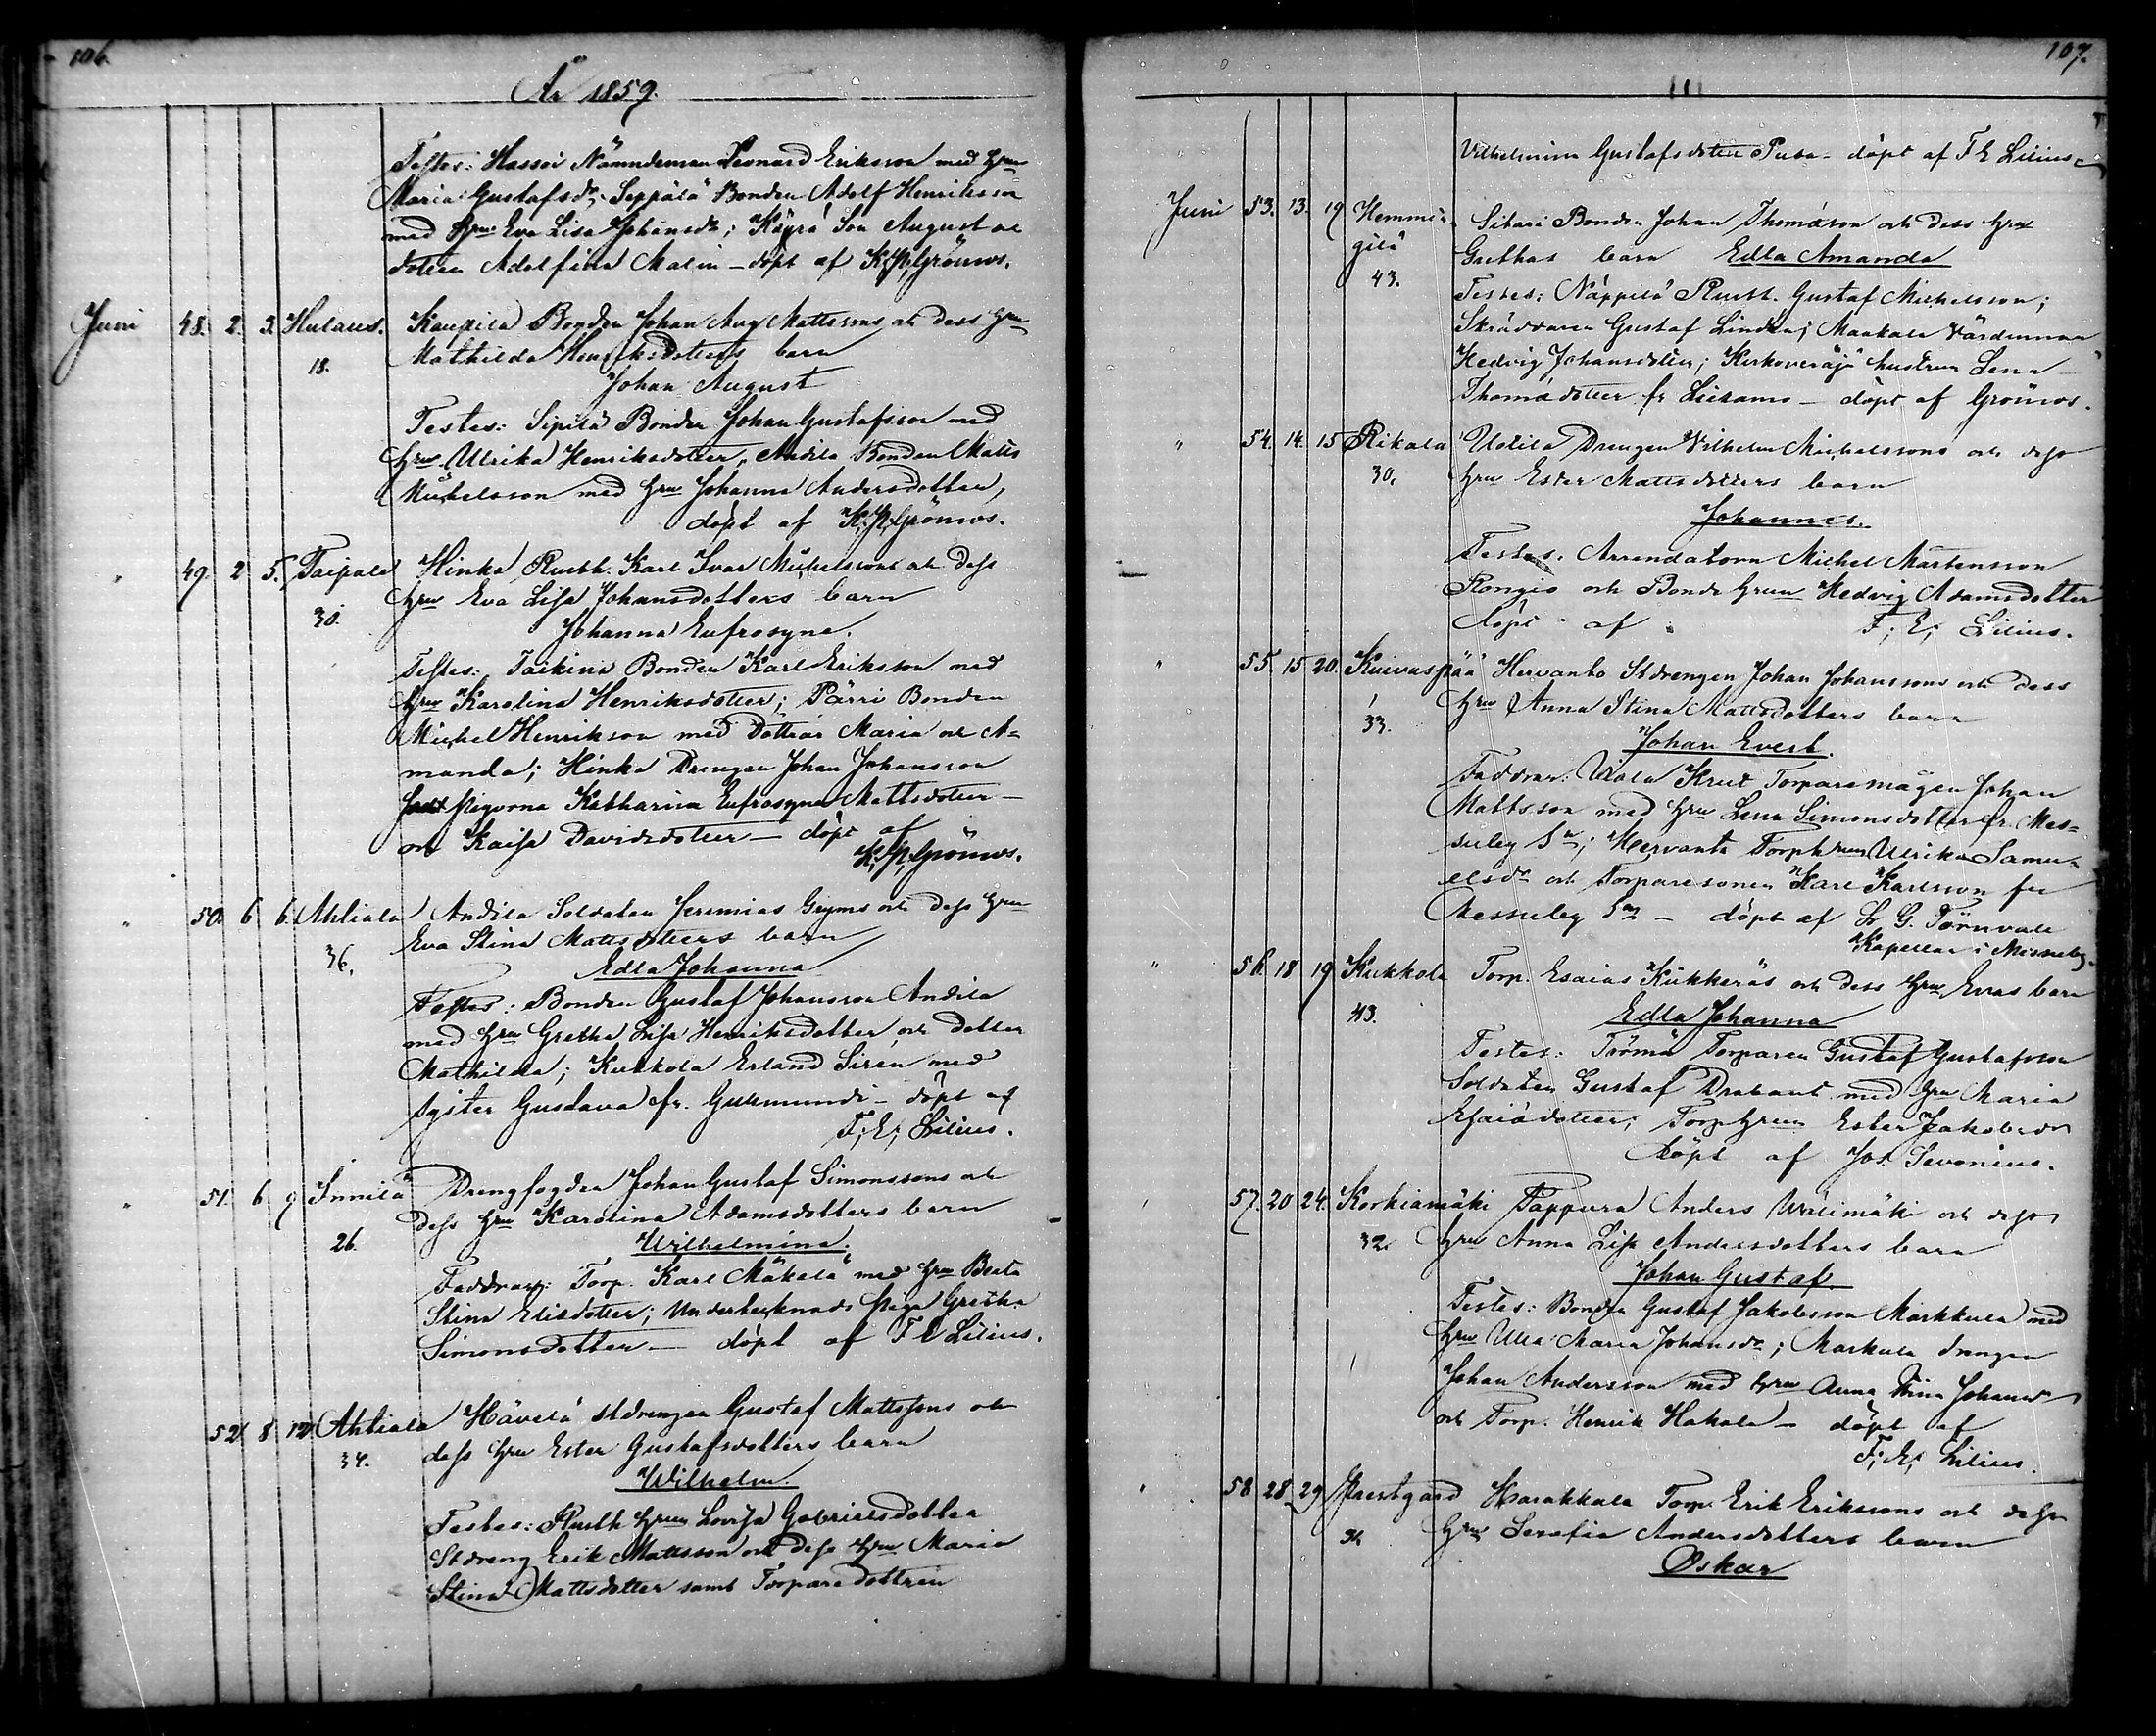 106.
År 1859.
Testes: Hassoi Nämndeman Leonard Eriksson med hru
Maria Gustafsdr, Seppälä Bonden Adolf Henriksson
med hru Eva Lisa Johansdr; Käyrä Son August och
dotter Adolfina Malin – döpt af K. N. Grönros.
Juni 48. 2. 3. Hulaus. Kaupila Bonden Johan Aug Mattssons och dess hru
18. Mathilda Henriksdotters barn
Johan August
Testes: Sipilä Bonden Johan Gustafsson med
hru Ulrika Henriksdotter, Andila Bonden Matts
Michelsson med hru Johanna Andersdotter,
döpt af K. N. Grönros.
" 49. 2 5. Taipale Hinka Rusth. Karl Ivar Michelssons och dess
30. hru Eva Lisa Johansdotters barn
Johanna Eufrosyne.
Testes: Taikina Bonden Karl Eriksson med
hru Karolina Henriksdotter; Pärri Bonden
Michel Henrikson med Döttrar Maria och A=
manda; Hinka Drengen Johan Johansson
pigorna Katharina Eufrosyna Mattsdotter –
och Kaisa Davidsdotter – döpt af
K. N. Grönros.
" 50. 6 6. Ahtiala Andila Soldaten Jeremias Gryms och dess hru
36. Eva Stina Mattsdotters barn
Edla Johanna
Testes: Bonden Gustaf Johansson Andila
med hru Gretha Lisa Henriksdotter och dotter
Mathilda; Kukkola Erland Sirén med
syster Gustava fr. Gukmundi – döpt af
F. E. Lilius.
" 51. 6 9 Innilä Drengfogden Johan Gustaf Simonssons och
26. dess hru Karolina Adamsdotters barn
Wilhelmina.
Faddrar: Torp. Karl Mäkelä med hru Beata
Stina Elisdotter; Undertecknads piga Gretha
Simonsdotter – döpt af F E Lilius.
52. 8 12 Ahtiala Hävelä stdrengen Gustaf Mattssons och
34. dess hru Ester Gustafsdotters barn
Wilhelm.
Testes: Rusth hrun Lovisa Gabrielsdotter
Stdreng Erik Mattsson och dess hru Maria
Stina Mattsdotter samt Torpare dottren
107.
Vilhelmina Gustafsdotter Pusa – döpt af F E Lilius
Juni 53. 13. 19 Hemmin= Sibari Bonden Johan Thomasson och dess hru
gilä Grethas barn Edla Amanda
43. Testes: Näppilä Rusth. Gustaf Michelsson;
Skräddaren Gustaf Lindén; Maakala Värdinnan
Hedvig Johansdotter; Kirkoveräjä hustrun Lena
Thomasdotter fr – döpt af Grönros.
" 54. 14. 15 Rikala Uotila Drengen Vilhelm Michelssons och dess
30. hru Ester Mattsdotters barn
Johannes.
Testes. Arrendatorn Michel Mårtensson
Rongio och Bonde hrun Hedvig Adamsdotter
döpt af F. E. Lilius.
" 55. 15 20. Kuivaspää Hervanto Stdrengen Johan Johanssons och dess
33. hru Anna Stina Mattsdotters barn
Johan Evert.
Faddrar: Viala Krut Torparemågen Johan
Mattsson med hru Lena Simonsdotter fr. Mes=
suby Sn; Hervanta Torphrun Ulrika Samu=
elsdr och Torparesonen Karl Karlsson fr
Messuby Sn – döpt af G. Törnvall
Kapellan i Messuby.
" 56. 18 19 Kukkola Torp. Esaias Kukkeräs och dess hru Evas barn
43. Edla Johanna
Testes: Törmä Torparen Gustaf Gustafsson
Soldaten Gustaf Drabant med hru Maria
Esaiädotter; Torp hrun Ester Jakobsdr
döpt af Jos. Sevonius.
57. 20 24. Korkiamäki Pappura Anders Wälimäki och dess
32. hru Anna Lisa Andersdotters barn
Johan Gustaf.
Testes: Bonden Gustaf Jakobsson Markkula med
hru Ulla Maria Johansdr; Markula drengen
Johan Andersson med hru Anna Stina Johansdr
och Torp. Henrik Hakala – döpt af
F. E. Lilius.
" 58 28 29 Prestgård Harakkala Torp. Erik Erikssons och dess
hru Serafia Andersdotters barn
Oskar